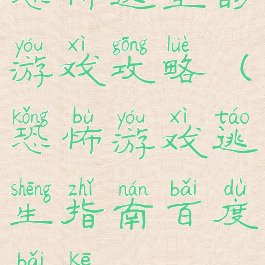 yóu xì gōng lüè
游戏攻略（
kǒng bù yóu xì táo
恐怖游戏逃
shēng zhǐ nán bǎi dù
生指南百度
bǎi kē